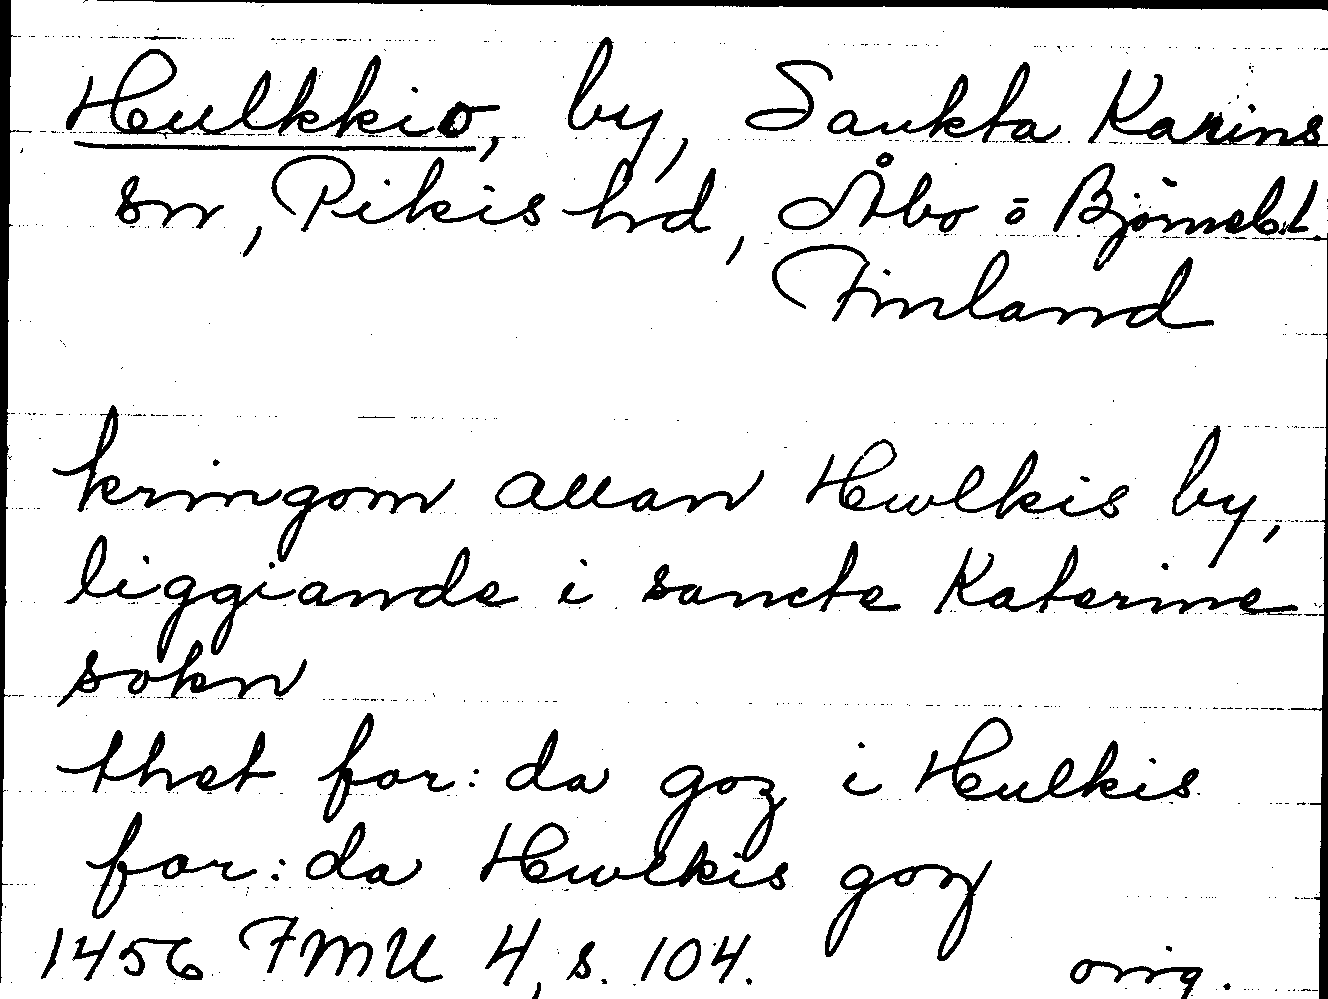 Hulkkio, by, Sankta Karins
sn, Pikis hd, Åbo o Björnebl.
Finland
kringom allan Hwlkis by,
liggiande i sancte Katerine
sokn
thet for:da goz i Hulkis
for:da Hwlkis goz
1456 FMU 4, s. 104. orig.